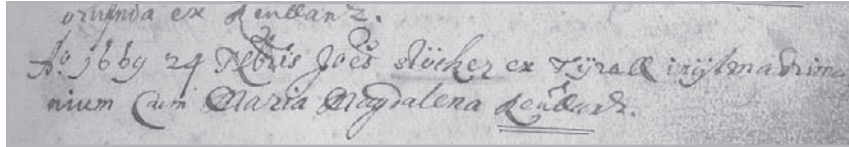 oriunda ex Kentzanz.
Aō 1669 24 Xbris Joēs Stöcker ex Tÿroll inijt matrimo
nium Cum Maria Magdalena